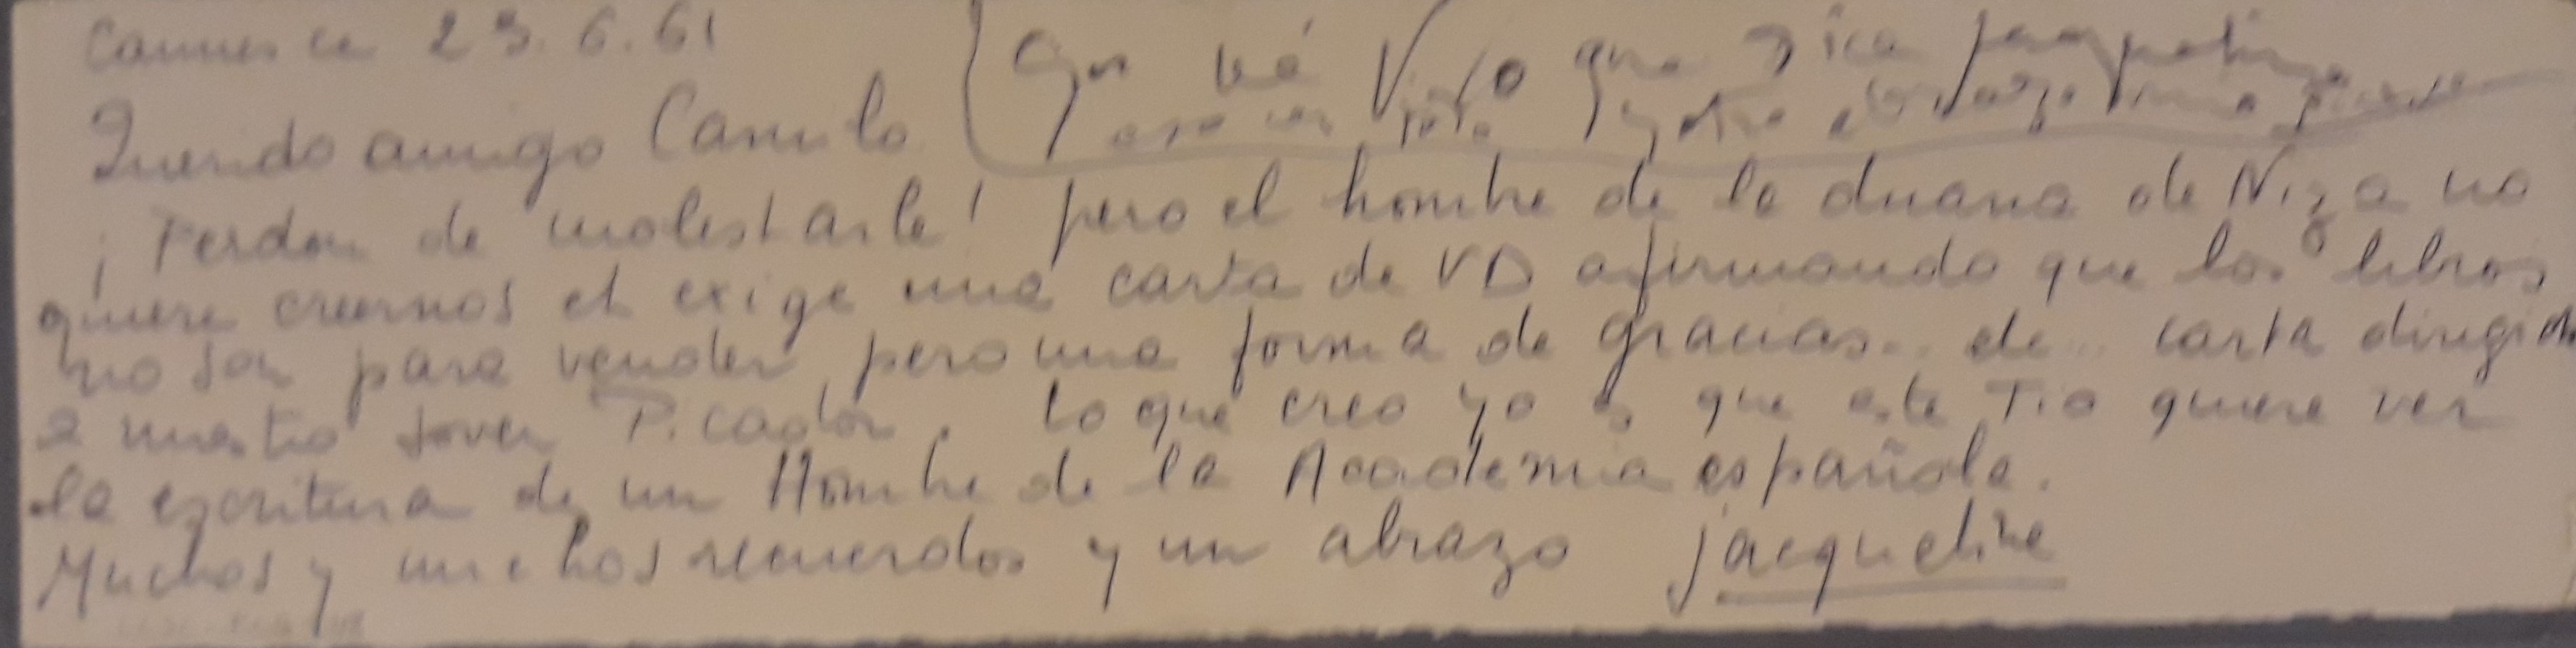 Cannes ce 23.6.61
Querido amigo Camilo
que dice Jaqueline
¡ Perdon de molestarle! pero el hombre de la duana de Niza no
quiere creernos el exige una carta de VD afirmando que los libros
no son para vender, pero una forma de gracias.. de .. carta dirigida
a nuestro Joven Picador. lo que creo yo es que este Tio quiere ver
la escritura de un Hombre de la Academia española.
Muchos y muchos recuerdos y un abrazo Jacqueline